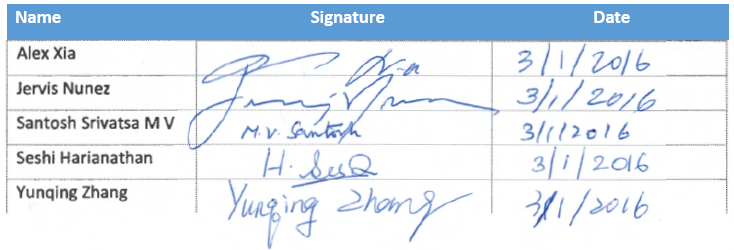 Name Signature Date
Alex Xia Xia 3/1/2016
Jervis Nunez 3/1/2016
Santosh Srivatsa M V M.V. Santosh 3/1/2016
Seshi Harianathan H. 3/1/2016
Yunqing Zhang Yunqing Zhang 3/1/2016